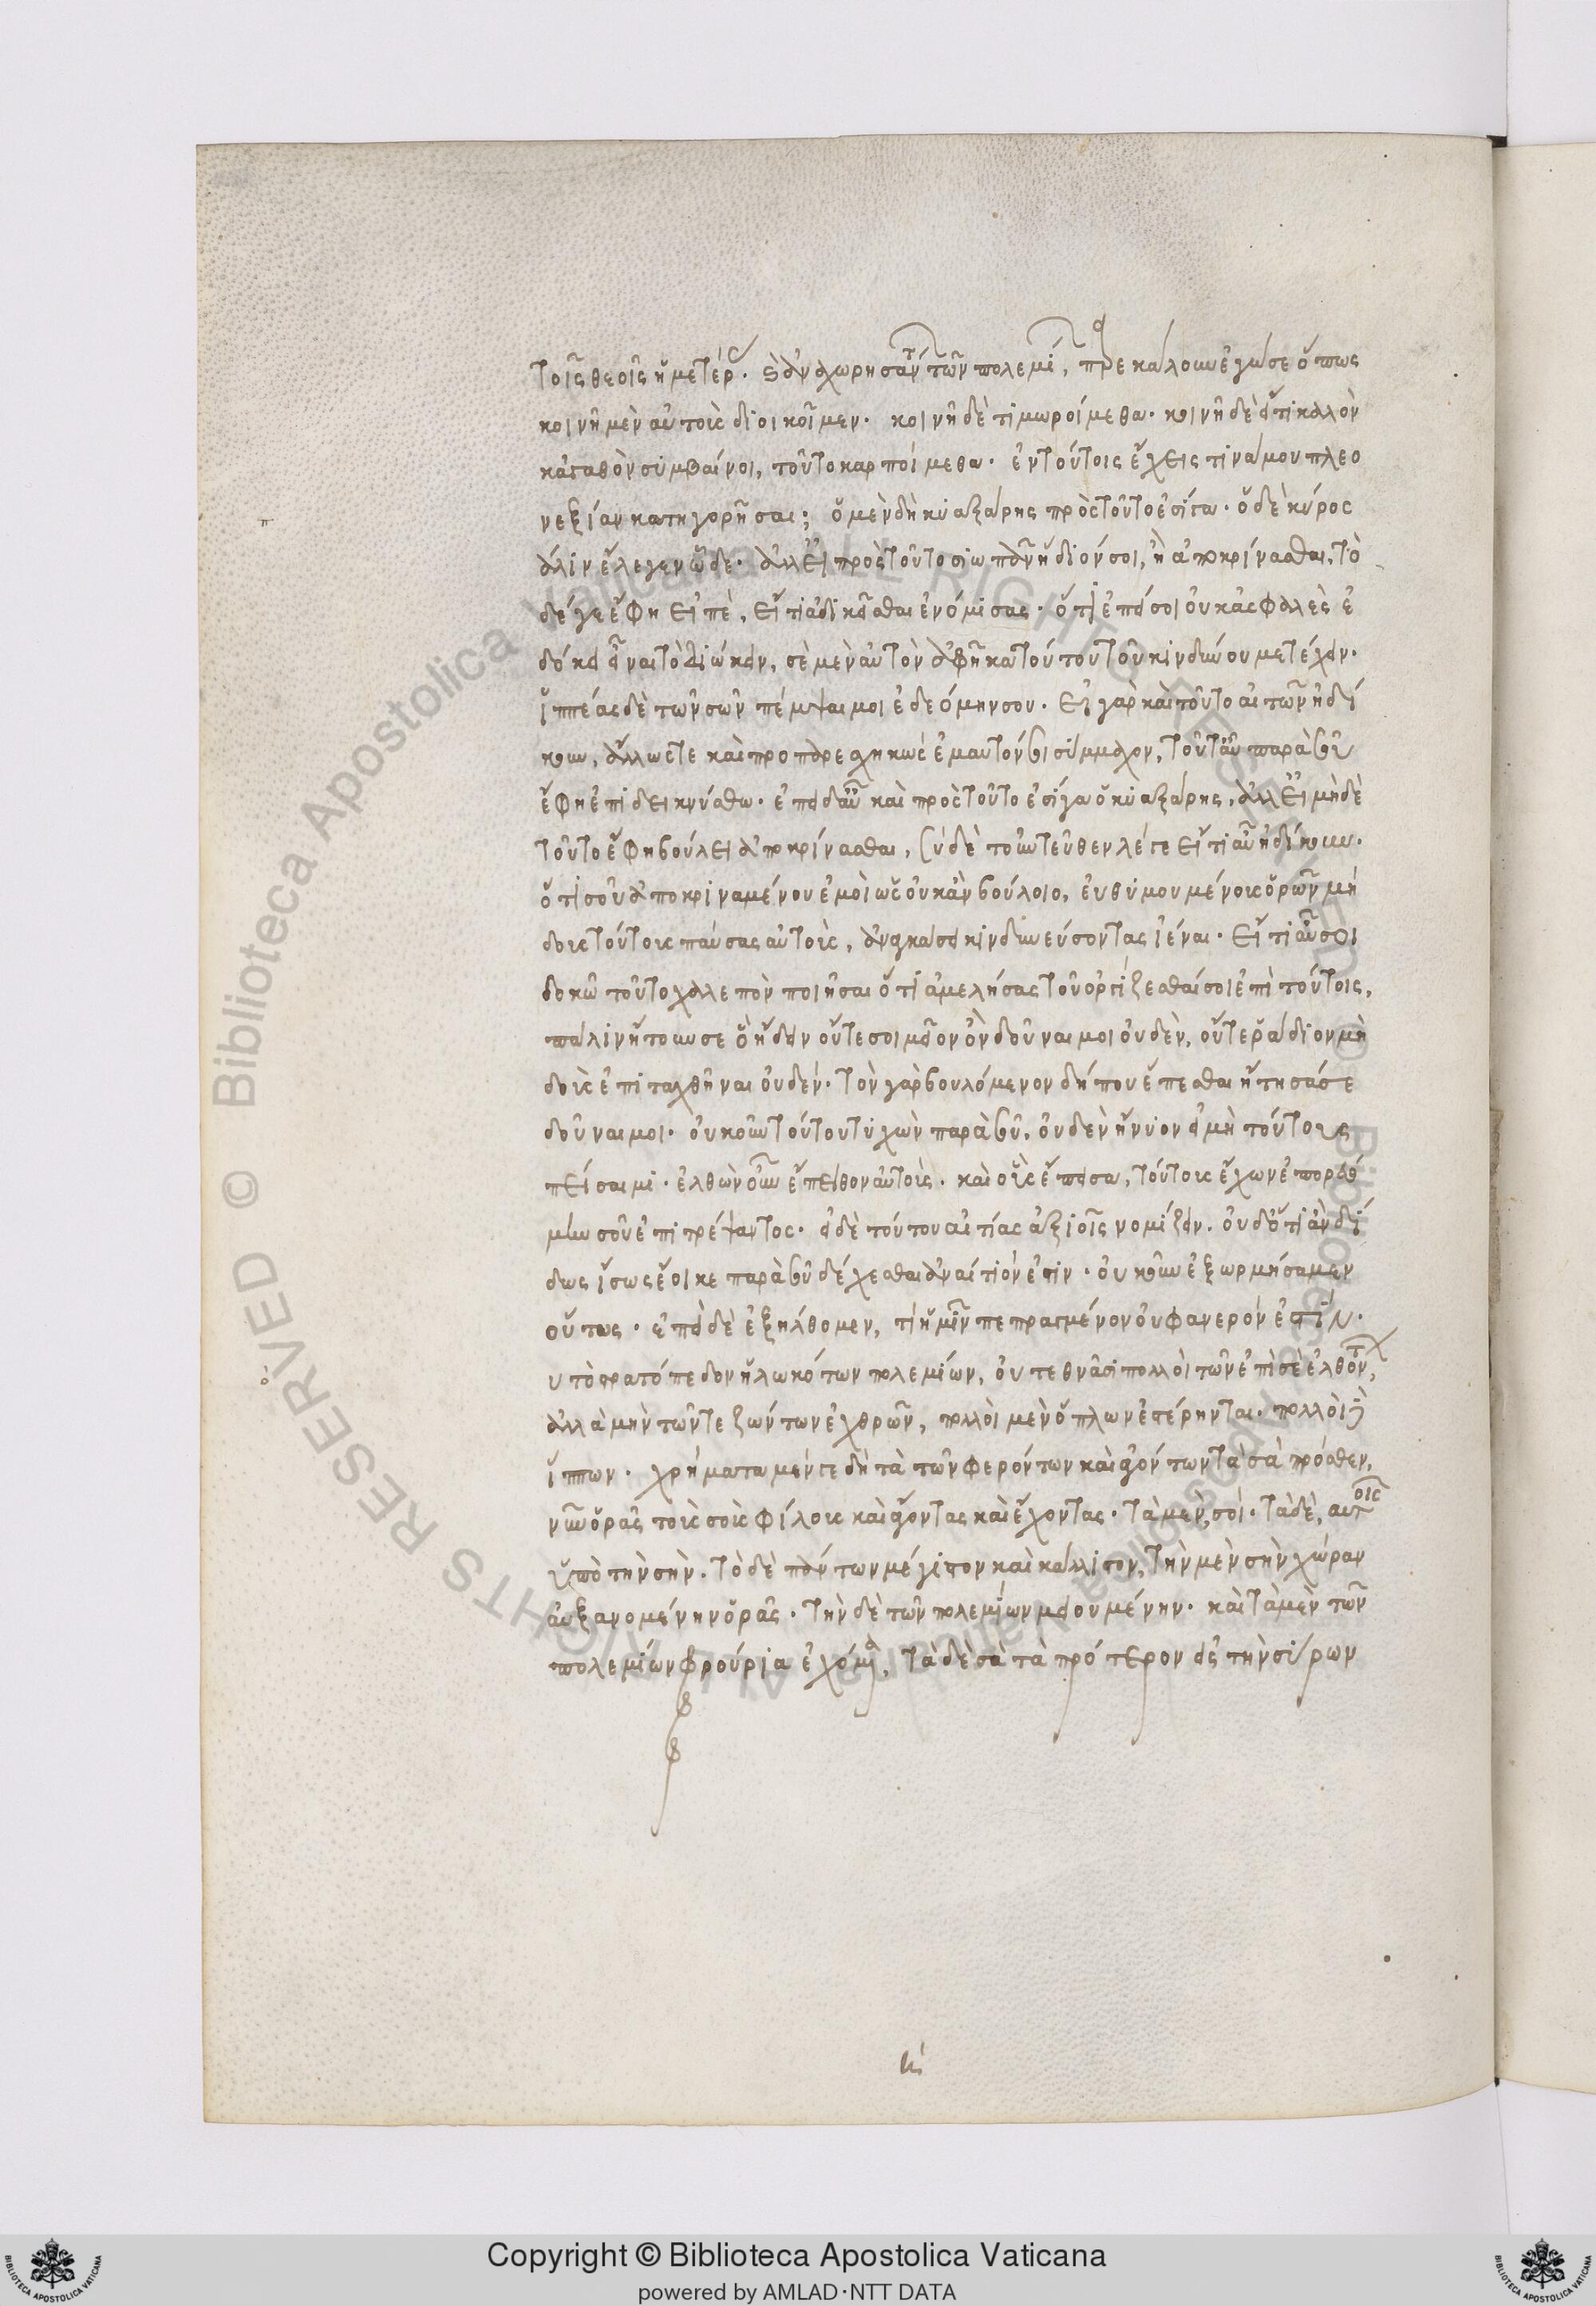 τοῖς θεοῖς ἡμετέρας. ἀναχωρησάντων τῶν πολεμίων, παρεκάλουν ἐγώ σε ὅπως
κοινῇ μὲν αὐτοὺς διοικοῖμεν. κοινῇ δὲ τιμωροίμεθα. κοινῇ δὲ εἴ τι καλὸν
κἀγαθὸν συμβαίνοι, τοῦτο καρποίμεθα. ἐν τούτοις ἔχεις τινά μου πλεο
νεξίαν κατηγορῆσαι; ὁ μὲν δὴ κυαξάρης πρὸς τοῦτο ἐσίγα. ὁ δὲ κύρος
άλιν ἔλεγεν ὧδε. ἀλλ' εἰ πρὸς τοῦτο σιωπᾶν ἥδιόν σοι, ἢ ἀποκρίνασθαι, τὸ
δέ γε ἔφη εἰπὲ, εἴ τι ἀδικεῖσθαι ἐνόμισας. ὅτι ἐπεί σοι οὐκ ἀσφαλὲς ἐ
δόκει εἶναι τὸ διώκειν, σὲ μὲν αὐτὸν ἀφῆκα τούτου τοῦ κινδύνου μετέχειν.
ἱππέας δὲ τῶν σῶν πέμψαι μοι ἐδεόμην σου. εἰ γὰρ καὶ τοῦτο αἰτῶν ἠδί
κουν, ἄλλως τε καὶ προπαρεσχηκὼς ἐμαυτόν σοι σύμμαχον, τοῦτ' αὖ παρὰ σοῦ
ἔφη ἐπιδεικνύσθω. ἐπεὶ δ' αὖ καὶ πρὸς τοῦτο ἐσίγα ὁ κυαξάρης, ἀλλ' εἰ μηδὲ
τοῦτο ἔφη βούλει ἀποκρίνασθαι, σὺ δὲ τοὐντεῦθεν λέγε εἴ τι αὖ ἠδίκουν.
ὅτι σοῦ ἀποκριναμένου ἐμοὶ ὡς οὐκ ἂν βούλοιο, εὐθυμουμένους ὁρῶν μή
δους τούτους παύσας αὐτοὺς, ἀναγκάσει κινδυνεύσοντας ἰέναι. εἴ τι αὖ σοι
δοκῶ τοῦτο χαλεπὸν ποιῆσαι ὅτι ἀμελήσας τοῦ ὀργίζεσθαί σοι ἐπὶ τούτοις,
πάλιν ᾔτουν σε ὃ ᾔδειν οὔτε σοι μεῖον ὂν δοῦναι μοι οὐδὲν, οὔτε ῥάδιον μή
δοις ἐπιταχθῆναι οὐδέν. τὸν γὰρ βουλόμενον δήπου ἕπεσθαι ᾔτησά σε
δοῦναι μοι. οὐκοῦν τούτου τυχὼν παρὰ σοῦ, οὐδὲν ἤνυον εἰ μὴ τούτους
πείσαιμι. ἐλθὼν οὖν ἔπειθον αὐτοὺς. καὶ οὓς ἔπεισα, τούτους ἔχων ἐπορευό
μην σοῦ ἐπιτρέψαντος. εἰ δὲ τούτου αἰτίας ἄξιοῖς νομίζειν. οὐδ' ὅ τι ἂν δι
δως ἴσως ἔοικε παρὰ σοῦ δέχεσθαι ἀναίτιόν ἐστιν. οὐκοῦν ἐξωρμήσαμεν
οὕτως. ἐπεὶ δὲ ἐξήλθομεν, τί ἡμῖν πεπραγμένον οὐ φανερόν ἐστίν.
υ τὸ στρατόπεδον ἥλωκό των πολεμίων, οὐ τεθνᾶσι πολλοὶ τῶν ἐπὶ σὲ ἐλθόντων,
ἀλλὰ μὴν τῶν τε ζώντων ἐχθρῶν, πολλοὶ μὲν ὅπλων ἐστέρηνται. πολλοὶ δὲ
ἵππων. χρήματα μέντε δὴ τὰ τῶν φερόντων καὶ ἀγόντων τὰ σὰ πρόσθεν,
νῦν ὁρᾷς τοὺς σοὺς φίλους καὶ ἄγοντας καὶ ἔχοντας. τὰ μέν, σοί. τὰ δὲ, αὐτοῖς
ὑπὸ τὴν σὴν. τὸ δὲ πάντων μέγιστον καὶ κάλλιστον, τὴν μὲν σὴν χώραν
αὐξανομένην ὁρᾷς. τὴν δὲ τῶν πολεμίων μειουμένην. καὶ τὰ μὲν τῶν
πολεμίων φρούρια ἐχόμενα, τὰ δὲ σὰ τὰ πρότερον εἰς τὴν σύρων
Copyright © Biblioteca Apostolica Vaticana
powered by AMLAD·NTT DATA